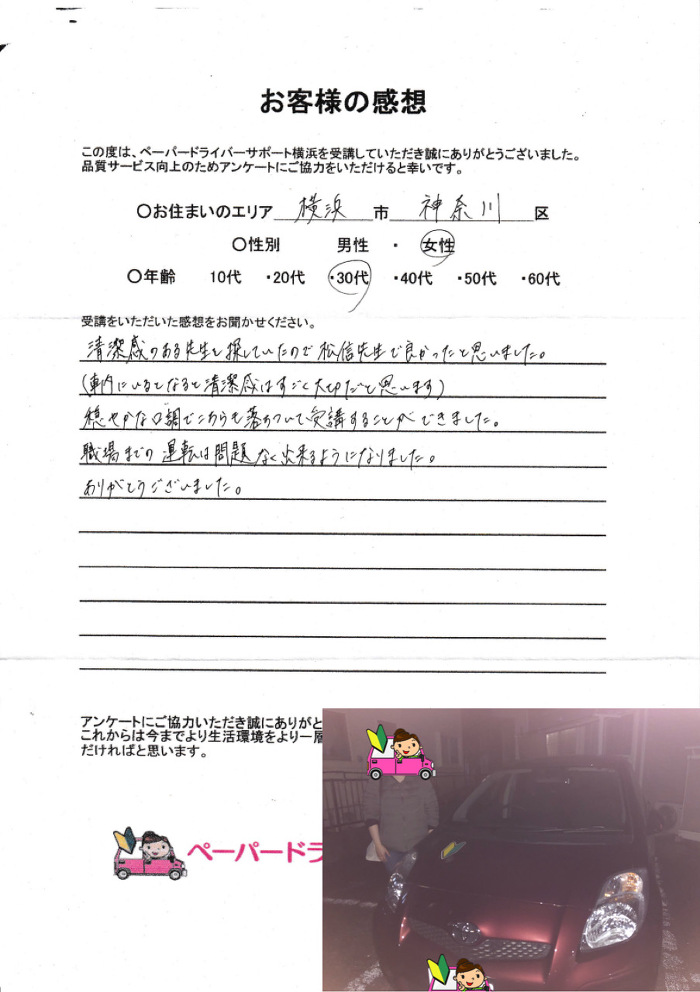 お客様の感想
この度は、ペーパードライバーサポート横浜を受講していただき誠にありがとうございました。
品質サービス向上のためアンケートにご協力をいただけると幸いです。
〇お住まいのエリア 横浜 市 神奈川 区
〇性別 男性 ・ 女性
〇年齢 10代 ・20代 ・30代 ・40代 ・50代 ・60代
受講をいただいた感想をお聞かせください。
清潔感のある先生を探していたので松信先生で良かったと思いました。
(車内にいるとなると清潔感はすごく大切だと思います)
穏やかな口調でこちらも落ちついて受講することができました。
職場までの運転は問題なく出来るようになりました。
ありがとうございました。
アンケートにご協力いただき誠にありがと
これからは今までより生活環境をより一層
だければと思います。
ペーパードラ